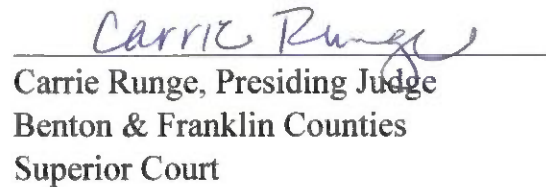 Carrie Runge
Carrie Runge, Presiding Judge
Benton & Franklin Counties
Superior Court